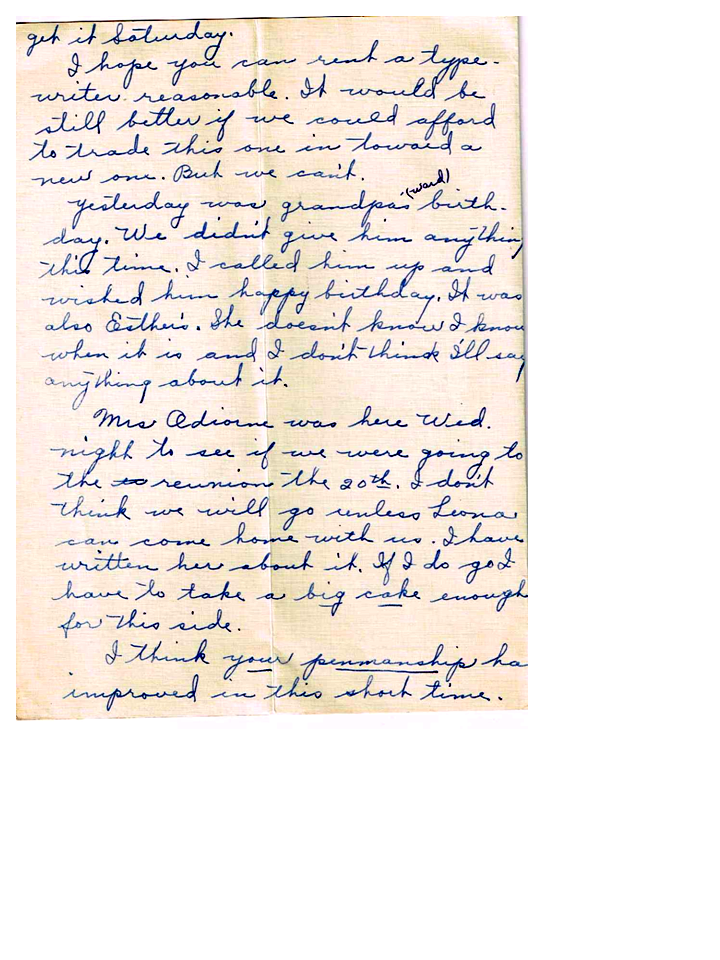 get it Saturday.
I hope you can rent a type-
writer reasonable. It would be
still better if we could afford
to trade this one in toward a
new one. But we can't.
(ward)
Yesterday was grandpa's birth-
day. We didn't give him anything
this time. I called him up and
wished him happy birthday. It was
also Esther's. She doesn't know I know
when it is and I don't think I'll say
anything about it.
Mrs Adiorne was here Wed.
night to see if we were going to
the to reunion the 20th. I don't
think we will go unless Leona
can come home with us. I have
written her about it. If I do go I
have to take a big cake enough
for this side.
I think your penmanship ha
improved in this short time.